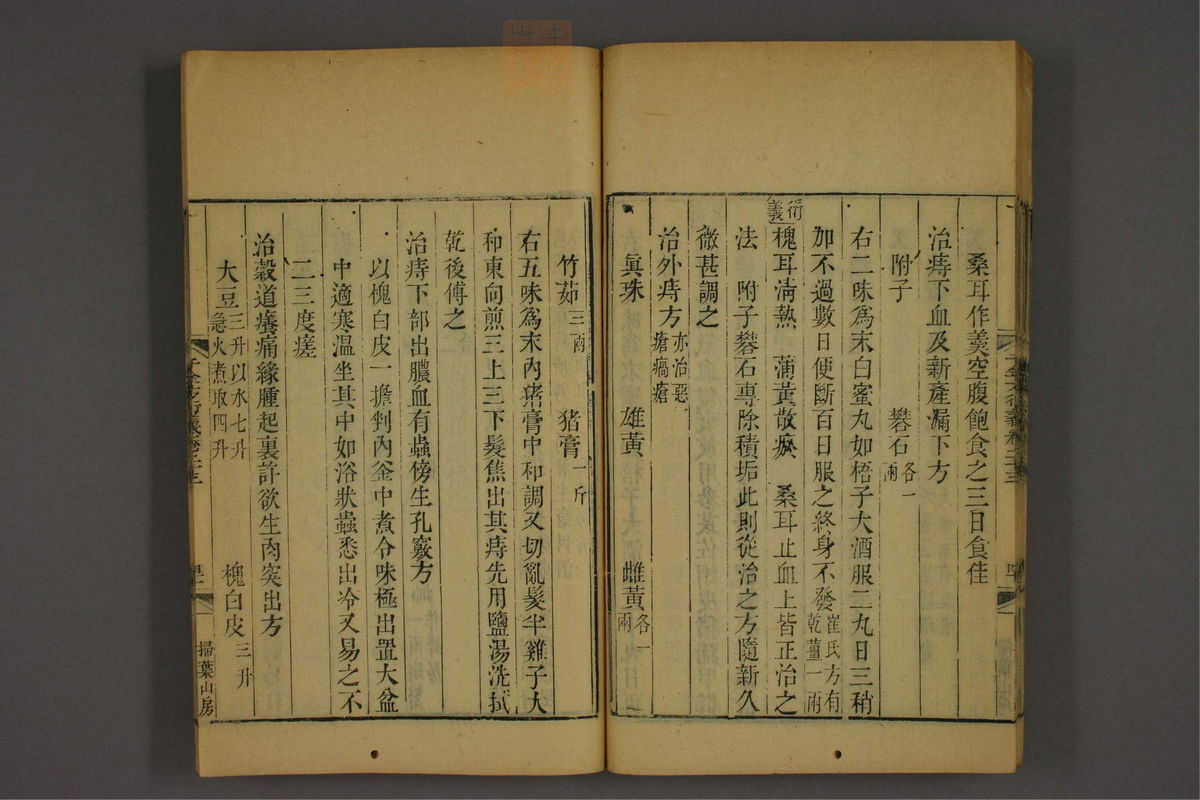 桑耳作羹空腹飽食之三日食佳
治痔下血及新產漏下方
附子 礬石各一兩
右二味爲末白蜜丸如梧子大酒服二丸日三稍
加不過數日便斷百日服之終身不發崔氏方有乾薑一兩
衍義槐耳淸熱 蒲黃散瘀 桑耳止血上皆正治之
法 附子礬石專除積垢此則從治之方隨新久
微甚調之
治外痔方亦治惡瘡瘑瘡
眞珠 雄黃 雌黃各一兩
竹茹三兩 猪膏一斤
右五味爲末內猪膏中和調又切亂髮半雞子大
和東向煎三上三下髮焦出其痔先用鹽湯洗拭
乾後傅之
治痔下部出膿血有蟲傍生孔竅方
以槐白皮一擔剉內釜中煮令味極出置大盆
中適寒溫坐其中如浴狀蟲悉出冷又易之不
二三度瘥
治穀道癢痛緣腫起裏許欲生肉突出方
大豆三升以水七升急火煮取四升 槐白皮三升
掃葉山房